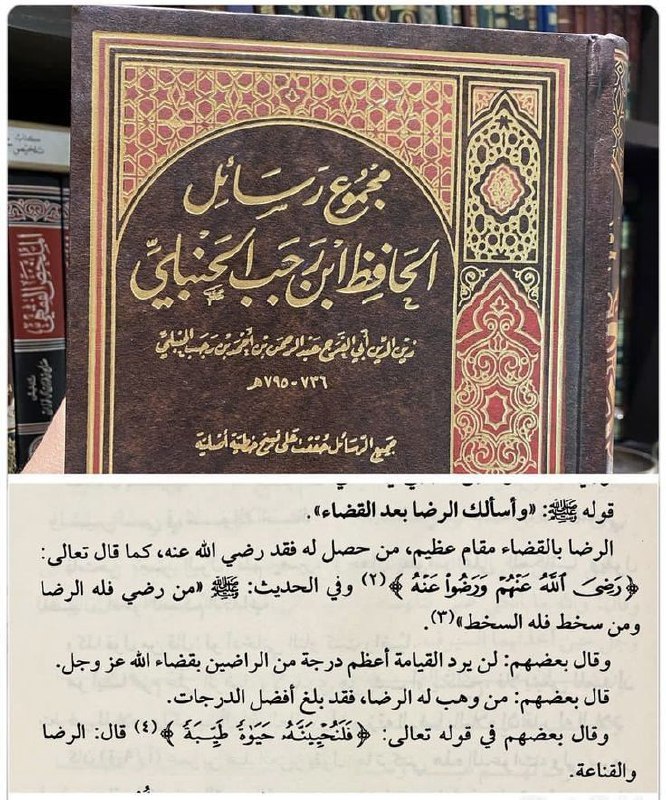 كتاب
تلخيص
الملخص الفقهي
مجموع رسائل
الحافظ ابن رجب الحنبلي
زين الدين أبي الفرج عبد الرحمن بن أحمد بن رجب الحنبلي
٧٣٦ - ٧٩٥ هـ
جميع الرسائل حققت على نسخ خطية أصلية
قوله ﷺ: «وأسألك الرضا بعد القضاء».
الرضا بالقضاء مقام عظيم، من حصل له فقد رضي الله عنه، كما قال تعالى:
﴿رَضِيَ ٱللَّهُ عَنْهُمْ وَرَضُوا۟ عَنْهُ﴾(٢) وفي الحديث: ﷺ «من رضي فله الرضا
ومن سخط فله السخط»(٣).
وقال بعضهم: لن يرد القيامة أعظم درجة من الراضين بقضاء الله عز وجل.
قال بعضهم: من وهب له الرضا، فقد بلغ أفضل الدرجات.
وقال بعضهم في قوله تعالى: ﴿فَلَنُحْيِيَنَّهُۥ حَيَوٰةً طَيِّبَةً﴾(٤) قال: الرضا
والقناعة.